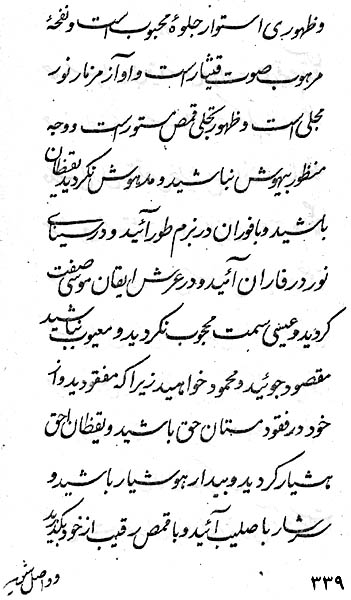 و ظهوری استوار جلوهٔ محبوب است و نفحهٔ
مرهوب صوت قیثار است و آواز مزمار نور
مجلی است و ظهور تجلی قمص مستور است و وجه
منظور بیهوش نباشید و مدهوش نگردید یقظان
باشید و با فوران در بزم طور آئید و در سینای
نور در فاران آئید و در عرش ایقان موسی صفت
گردید و عیسی سمت محجوب نگردید و معیوب نباشید
مقصود جوئید و محمود خواهید زیرا که مفقودید و از
خود در فقود مستان حق باشید و یقظان حق
هشیار گردید و بیدار هوشیار باشید و
سرشار با صلیب آئید و با قمص رقیب از خود بگذرید
و واصل شوید
۳۳۹